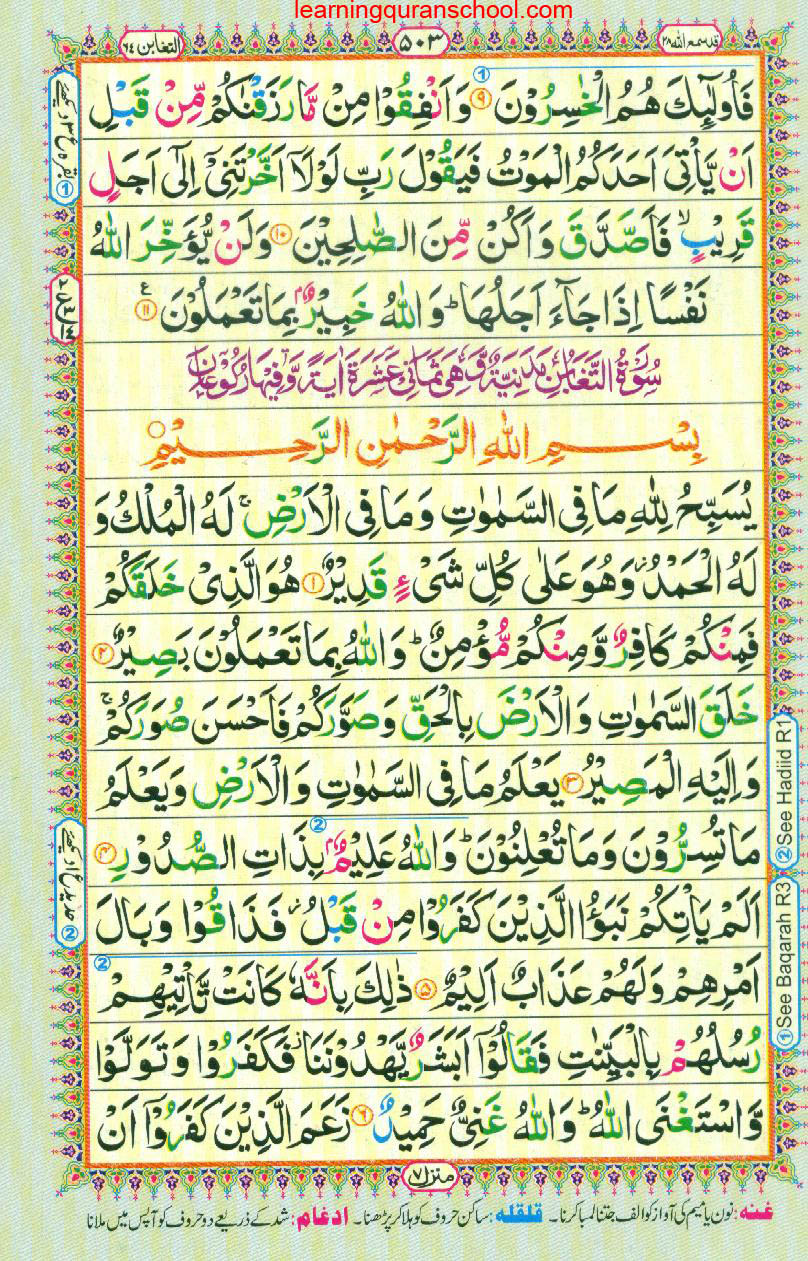 learningquranschool.com
قد سمع الله ٢٨
٥٠٣
التغابن ٦٤
فَاُولٰٓئِكَ هُمُ الْخٰسِرُوْنَ ۹ وَاَنْفِقُوْا مِنْ مَّا رَزَقْنٰكُمْ مِّنْ قَبْلِ
اَنْ يَّاْتِىَ اَحَدَكُمُ الْمَوْتُ فَيَقُوْلَ رَبِّ لَوْلَآ اَخَّرْتَنِىْٓ اِلٰٓى اَجَلٍ
قَرِيْبٍۙ فَاَصَّدَّقَ وَاَكُنْ مِّنَ الصّٰلِحِيْنَ ۱۰ وَلَنْ يُّؤَخِّرَ اللّٰهُ
نَفْسًا اِذَا جَآءَ اَجَلُهَاؕ وَاللّٰهُ خَبِيْرٌۢ بِمَا تَعْمَلُوْنَ ۱۱ ع
سُوْرَةُ التَّغَابُنِ مَدَنِيَّةٌ وَّهِىَ ثَمَانِىْ عَشَرَةَ اٰيَةً وَّفِيْهَا رُكُوْعَانِ
بِسْمِ اللّٰهِ الرَّحْمٰنِ الرَّحِيْمِ
يُسَبِّحُ لِلّٰهِ مَا فِى السَّمٰوٰتِ وَمَا فِى الْاَرْضِۚ لَهُ الْمُلْكُ وَ
لَهُ الْحَمْدُؗ وَهُوَ عَلٰى كُلِّ شَىْءٍ قَدِيْرٌ ۱ هُوَ الَّذِىْ خَلَقَكُمْ
فَمِنْكُمْ كَافِرٌ وَّمِنْكُمْ مُّؤْمِنٌؕ وَاللّٰهُ بِمَا تَعْمَلُوْنَ بَصِيْرٌ ۲
خَلَقَ السَّمٰوٰتِ وَالْاَرْضَ بِالْحَقِّ وَصَوَّرَكُمْ فَاَحْسَنَ صُوَرَكُمْۚ
وَاِلَيْهِ الْمَصِيْرُ ۳ يَعْلَمُ مَا فِى السَّمٰوٰتِ وَالْاَرْضِ وَيَعْلَمُ
مَا تُسِرُّوْنَ وَمَا تُعْلِنُوْنَؕ وَاللّٰهُ عَلِيْمٌۢ بِذَاتِ الصُّدُوْرِ ۴
اَلَمْ يَاْتِكُمْ نَبَؤُا الَّذِيْنَ كَفَرُوْا مِنْ قَبْلُؗ فَذَاقُوْا وَبَالَ
اَمْرِهِمْ وَلَهُمْ عَذَابٌ اَلِيْمٌ ۵ ذٰلِكَ بِاَنَّهٗ كَانَتْ تَّاْتِيْهِمْ
رُسُلُهُمْ بِالْبَيِّنٰتِ فَقَالُوْٓا اَبَشَرٌ يَّهْدُوْنَنَاؗ فَكَفَرُوْا وَتَوَلَّوْا
وَّاسْتَغْنَى اللّٰهُؕ وَاللّٰهُ غَنِىٌّ حَمِيْدٌ ۶ زَعَمَ الَّذِيْنَ كَفَرُوْٓا اَنْ
② See Hadiid R1
① See Baqarah R3
منزل ۷
غنہ: نون یا میم کی آواز کو الف جتنا لمبا کرنا۔ قلقلہ: ساکن حروف کو ہلا کر پڑھنا۔ ادغام: شد کے ذریعے دو حروف کو آپس میں ملانا